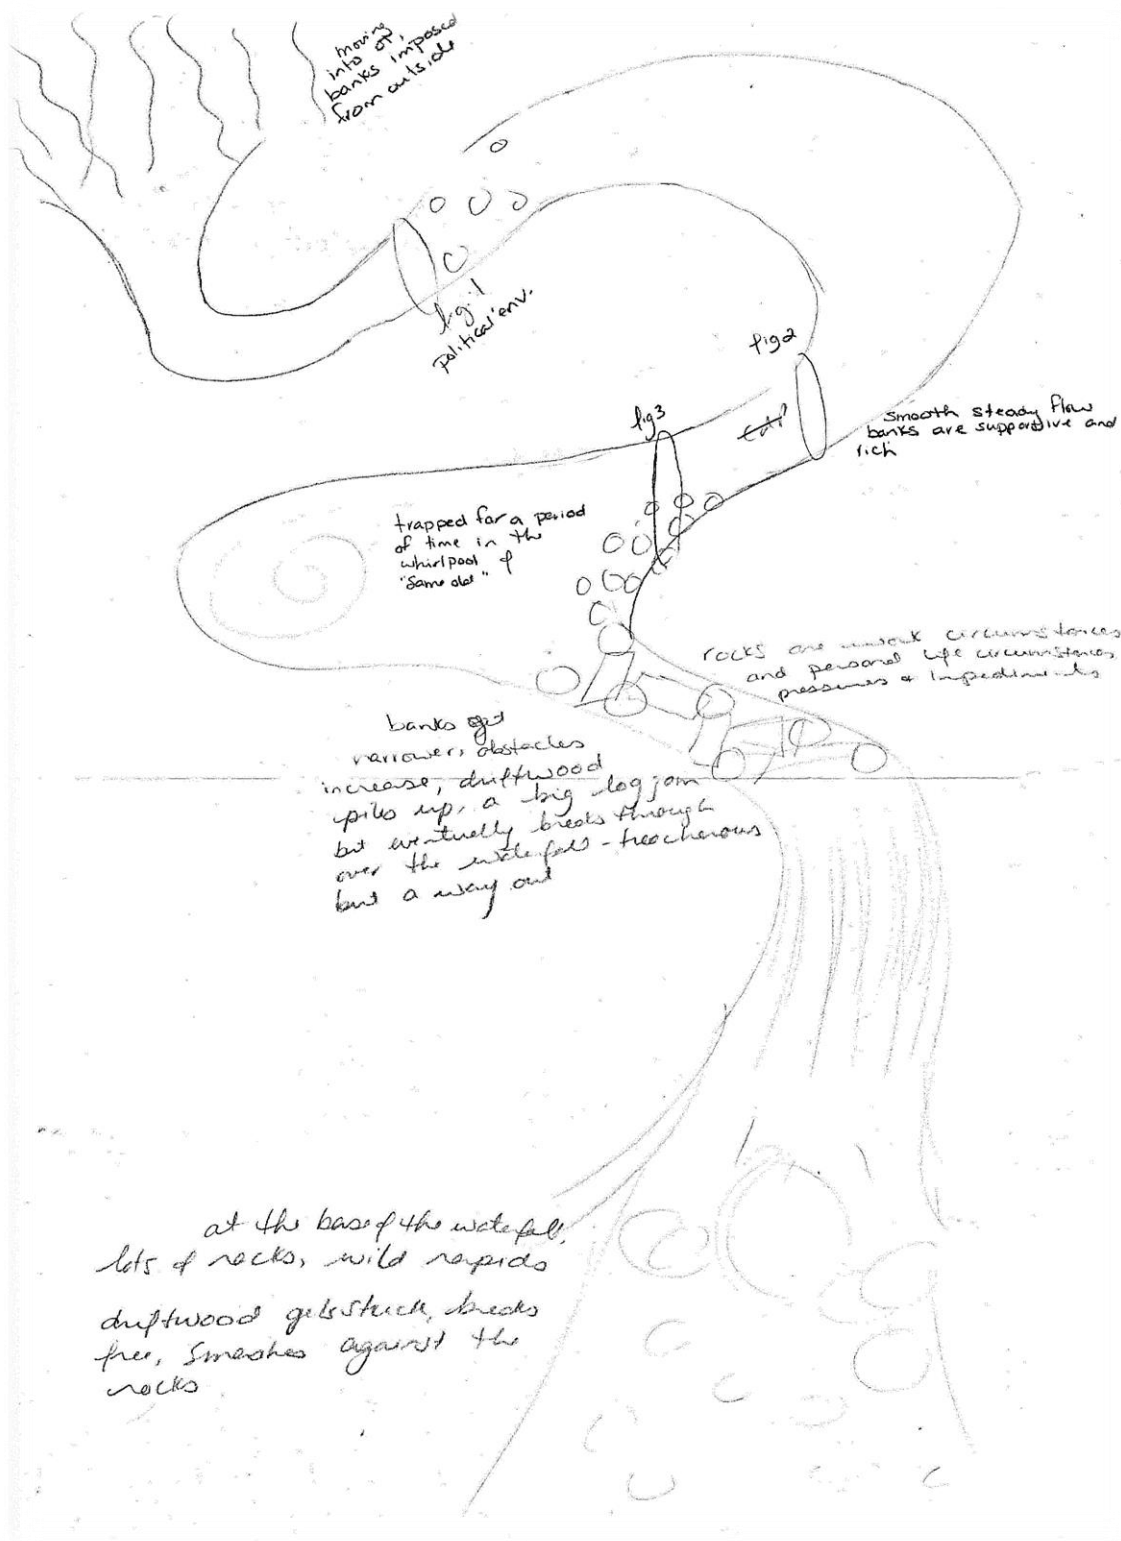 moving
into OT,
banks imposed
from outside
fig. 1
political env.
fig 2
smooth steady flow
banks are supportive and
rich
fig 3
trapped for a period
of time in the
whirlpool of
"same old"
rocks are work circumstances
and personal life circumstances,
pressures & impediments
banks get
narrower, obstacles
increase, driftwood
piles up, a big log jam
but eventually breaks through
over the waterfall - treacherous
but a way out
at the base of the waterfall,
lots of rocks, wild rapids
driftwood gets stuck, breaks
free, smashes against the
rocks